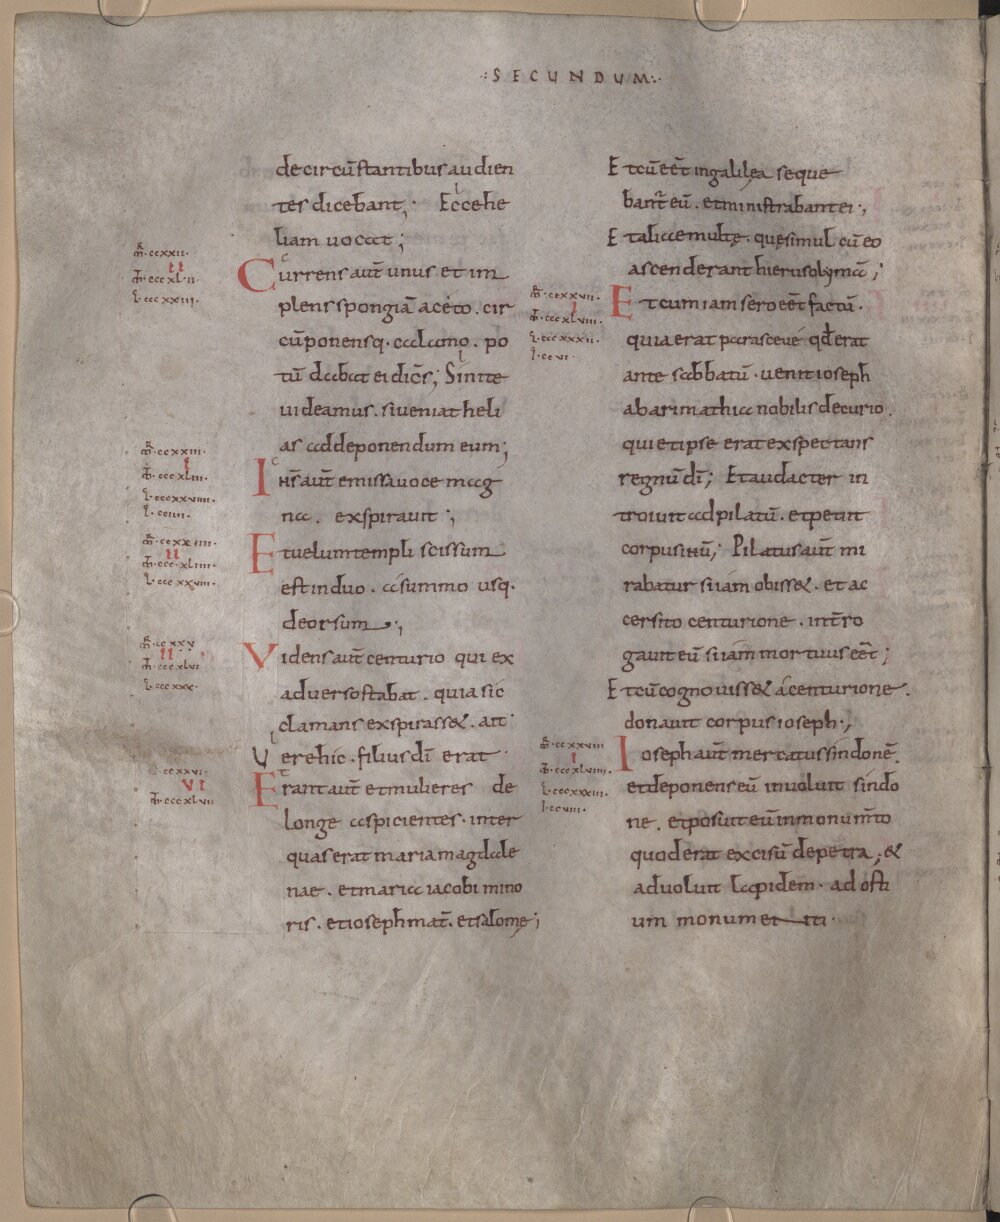 ·:SECUNDUM:·
de circū̄stantibus audien
tes dicebant; Ecce he
liam uocat;
m̅R̅·ccxxii·
II
m̅T̅·cccxlii·
L·cccxxiii·
Currens aut̄ unus et im
plens spongiā acęto. cir
cūponensq· calamo. po
tū dabat ei dicēs; Sinite
uideamus. si ueniat heli
as ad deponendum eum;
m̅R̅·ccxxiii·
I
m̅T̅·cccxliii·
L·cccxxviiii·
I·cciiii·
Ihs̄ aut̄ emissa uoce mag
na. exspirauit;
m̅R̅·ccxxiiii·
II
m̅T̅·cccxliiii·
L·cccxxviii·
Et uelum templi scissum
est in duo. a summo usq·
deorsum·;
m̅R̅·ccxxv
II
m̅T̅·cccxlvi
L·cccxxx·
Videns aut̄ centurio qui ex
aduerso stabat. quia sic
clamans exspirass&. ait·
Vere hic· filius dī erat·
ccxxvi·
VI
m̅T̅·cccxlvii
Erant aut̄ et mulieres de
longe aspicientes· inter
quas erat maria magdale
nae. et maria iacobi mino
ris. et ioseph mat̄. et salome;
Et cū eēt in galilęa seque
bant̄ eū. et ministrabant ei·;
Et aliae multę. quę simul cū eo
ascenderant hierusolymā;
m̅R̅·ccxxvii·
I
m̅T̅·cccxlviii·
L·cccxxxii·
I·ccvi·
Et cum iam sero eēt factū·
quia erat parasceue qđ erat
ante sabbatū· uenit ioseph
ab arimathia nobilis decurio.
qui et ipse erat exspectans
regnū dī; Et audacter in
troiuit ad pilatū. et petiit
corpus ihū; Pilatus aut̄ mi
rabatur si iam obiss&. et ac
cersito centurione. int̄ro
gauit eū si iam mortuus eēt;
Et cū cognouiss& a centurione.
donauit corpus ioseph·;
m̅R̅·ccxxviii
I
m̅T̅·cccxlviiii·
L·cccxxxiii·
I·ccviii·
Ioseph aut̄ mercatus sindonē.
et deponens eū inuoluit sindo
ne. et posuit eū in monum̄to
quod erat excisū de petra; &
aduoluit lapidem· ad osti
um monumenti·